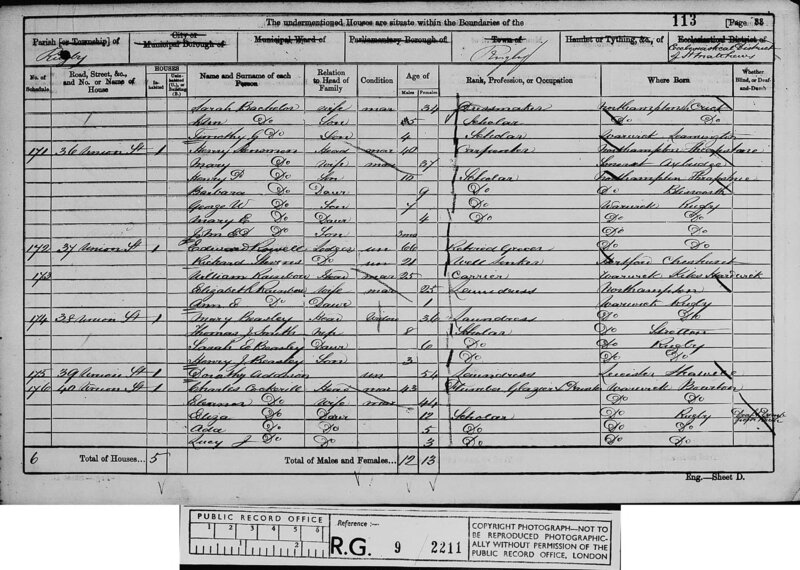 The undermentioned Houses are situate within the Boundaries of the
113 [Page 33
Parish [or Township] of
Rugby
City or Municipal Borough of
Municipal Ward of
Parliamentary Borough of
Town of
Rugby
Hamlet or Tything, &c., of
Ecclesiastical District of
Ecclesiastical District of St Matthews
No. of Schedule
Road, Street, &c., and No. or Name of House
HOUSES
Inhabited
Uninhabited (U.), or Building (B.)
Name and Surname of each Person
Relation to Head of Family
Condition
Age of
Males
Females
Rank, Profession, or Occupation
Where Born
Whether Blind, or Deaf-and-Dumb
Sarah Bachelor wife mar 34 Dressmaker Northamptons Crick
Do Son Scholar Do Do
Timothy G Do Son 4 Scholar Warwick Leamington
171 36 Union St 1 Henry Head mar 40 Carpenter Northampton
Mary Do Wife mar 37 Somerset Axbridge
Henry Do Son 10 Scholar Northampton
Barbara Do Daur 9 Do Do
George W Do Son 7 Do Warwick Rugby
Mary E Do Daur 4 Do Do
John E Do Son 3mo Do Do
172 37 Union St 1 Edward Lodger un 66 Retired Grocer Do Do
Richard Do un 21 Well Sinker Hertford Cheshunt
173 William Rainbow Head mar 25 Carrier Warwick
Elizabeth Rainbow Wife mar 25 Laundress Northampton
Ann E Do Daur 1 Warwick Rugby
174 38 Union St 1 Mary Beasley Head Widow 36 Laundress Do Do
Thomas J Smith 8 Scholar Do
Sarah E Beasley Daur 6 Do Do Rugby
Henry J Beasley Son 3 Do Do
175 39 Union St 1 Dorothy un 54 Laundress Leicester
176 40 Union St 1 Charles Cockerill Head mar 43 Plumber Glazier & Warwick
Eleanor Do Wife mar 44 Do Do
Eliza Do Daur 12 Scholar Do Rugby Deaf & Dumb from Birth
Ada Do Do 5 Do Do
Lucy J Do Do 3 Do Do
6 Total of Houses... 5 Total of Males and Females... 12 13
Eng.—Sheet D.
PUBLIC RECORD OFFICE
1 2 3 4 5 6
1 2
Reference :—
R.G. 9 2211
COPYRIGHT PHOTOGRAPH—NOT TO
BE REPRODUCED PHOTOGRAPHIC-
ALLY WITHOUT PERMISSION OF THE
PUBLIC RECORD OFFICE, LONDON